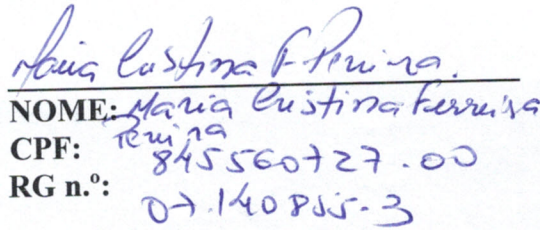 Maria Cristina F Pereira.
NOME: Maria Cristina Ferreira
Pereira
CPF: 845560727.00
RG n.º: 07.140855-3